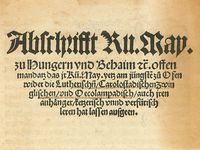 Abschrifft Kü. May.
zu Hungern vnd Behaim ꝛc. offen
mandatz das jr Kü. May. yetz am jüngstẽ zů Ofen
wider die Lutherischẽ, Carolostadischen, Zwin
glischen, vnd Oecolampadisch, auch jren
anhänger, ketzerisch vnnd verfürisch
leren hat lassen außgeen.